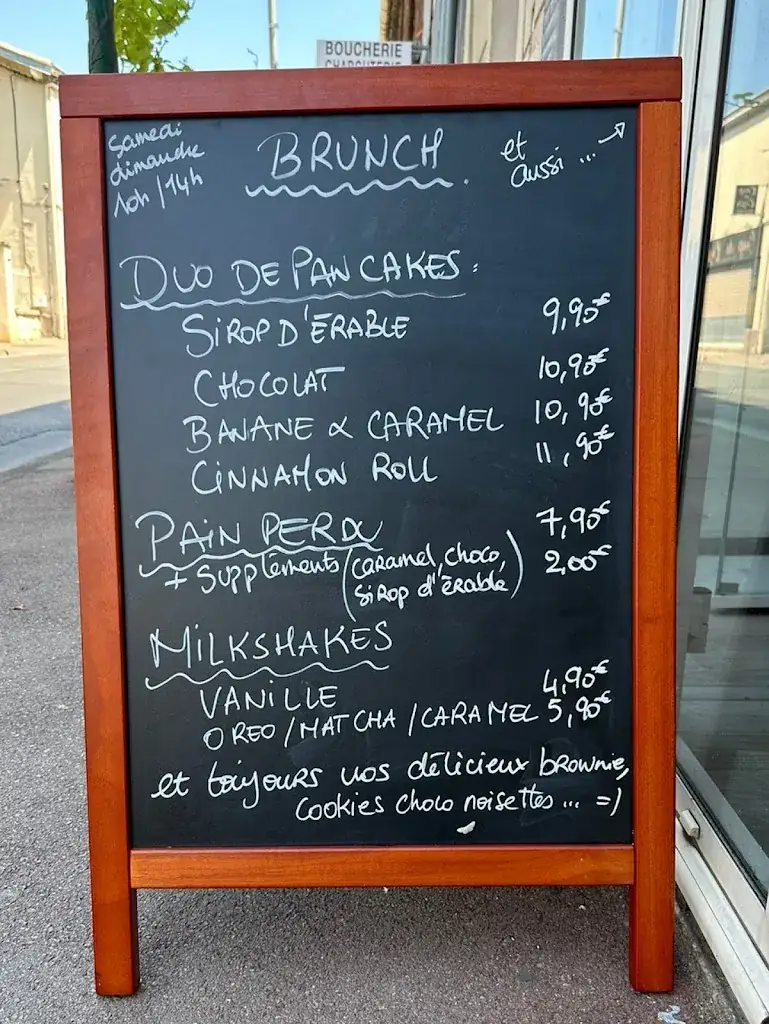 BOUCHERIE
CHARCUTERIE
samedi
dimanche
10h / 14h
BRUNCH.
et
aussi ... ↗
DUO DE PANCAKES :
SIROP D'ÉRABLE 9,90€
CHOCOLAT 10,90€
BANANE & CARAMEL 10,90€
CINNAMON ROLL 11,90€
PAIN PERDU 7,90€
+ suppléments (caramel, choco, 2,00€
sirop d'érable)
MILKSHAKES
VANILLE 4,90€
OREO / MATCHA / CARAMEL 5,90€
et toujours nos délicieux brownie,
cookies choco noisettes ... =)